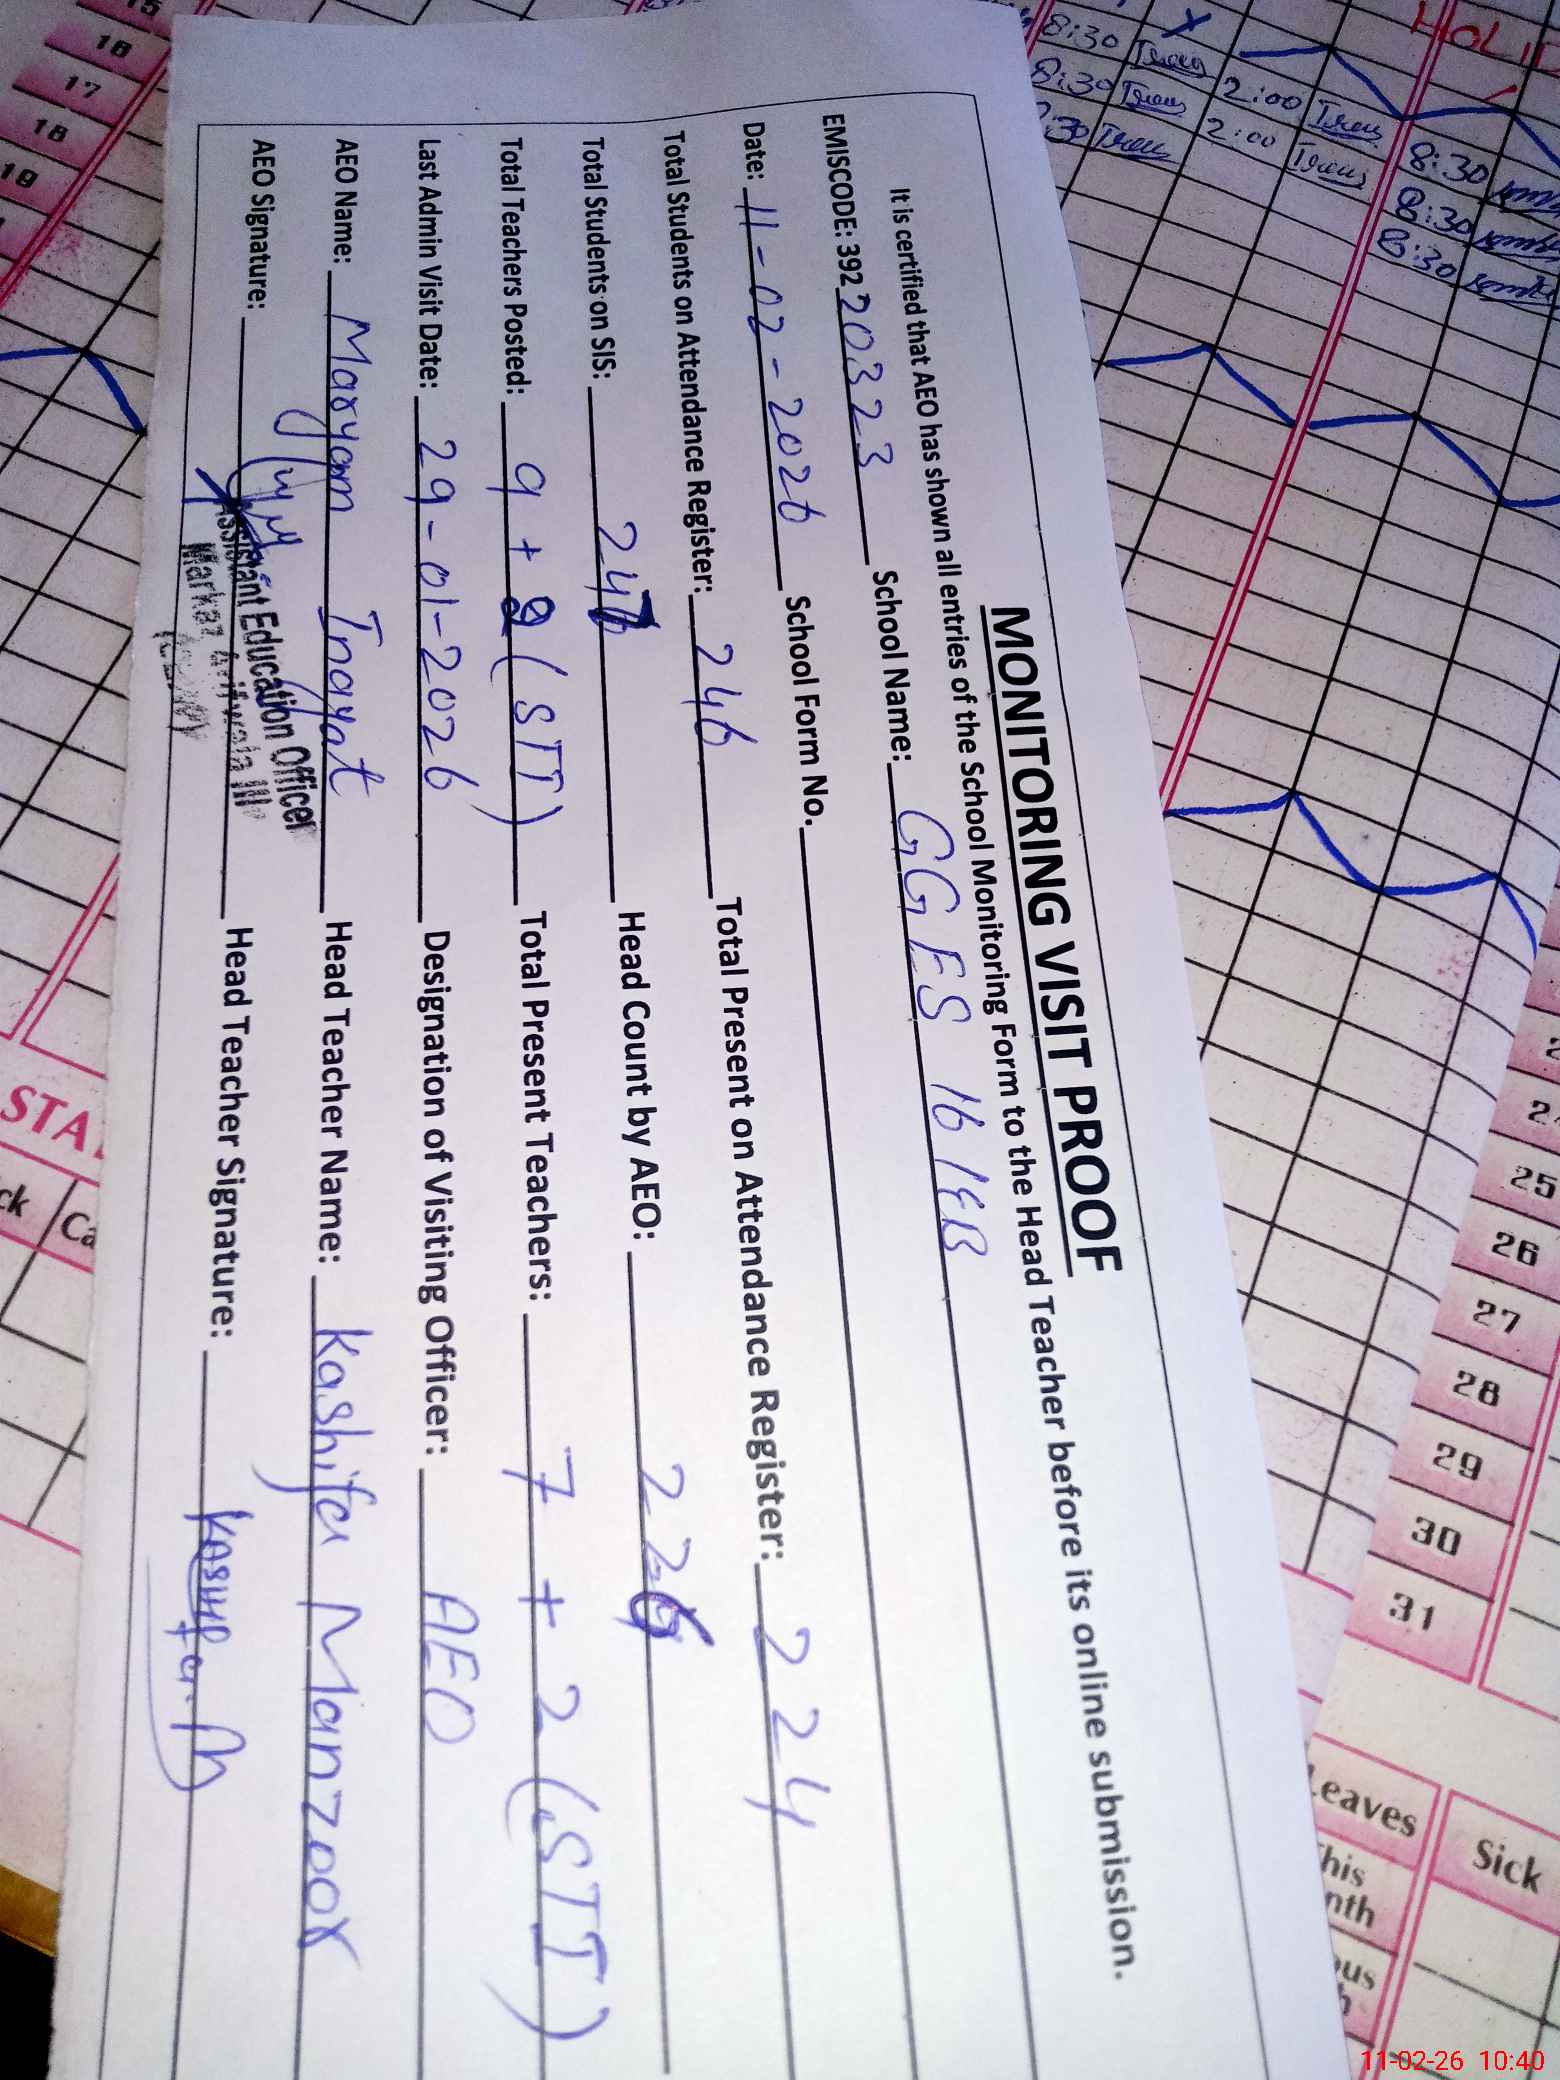 MONITORING VISIT PROOF
It is certified that AEO has shown all entries of the School Monitoring Form to the Head Teacher before its online submission.
EMISCODE: 39220323 School Name: GGES 161EB
Date: 11-02-2026 School Form No.
Total Students on Attendance Register: 246 Total Present on Attendance Register: 224
Total Students on SIS: Head Count by AEO:
Total Teachers Posted: 9 + (STT) Total Present Teachers: 7 + 2 (STT)
Last Admin Visit Date: 29-01-2026 Designation of Visiting Officer: AEO
AEO Name: Maryam Inayat Head Teacher Name: Kashifa Manzoor
AEO Signature: Head Teacher Signature: Kashifa M
Assistant Education Officer
Markaz III
HOLI
8:30
8:30 2:00 8:30
2:00 8:30
8:30
16
17
18
19
25
26
27
28
29
30
31
STA
ck Ca
Leaves Sick
This
nth
ous
h
11-02-26 10:40